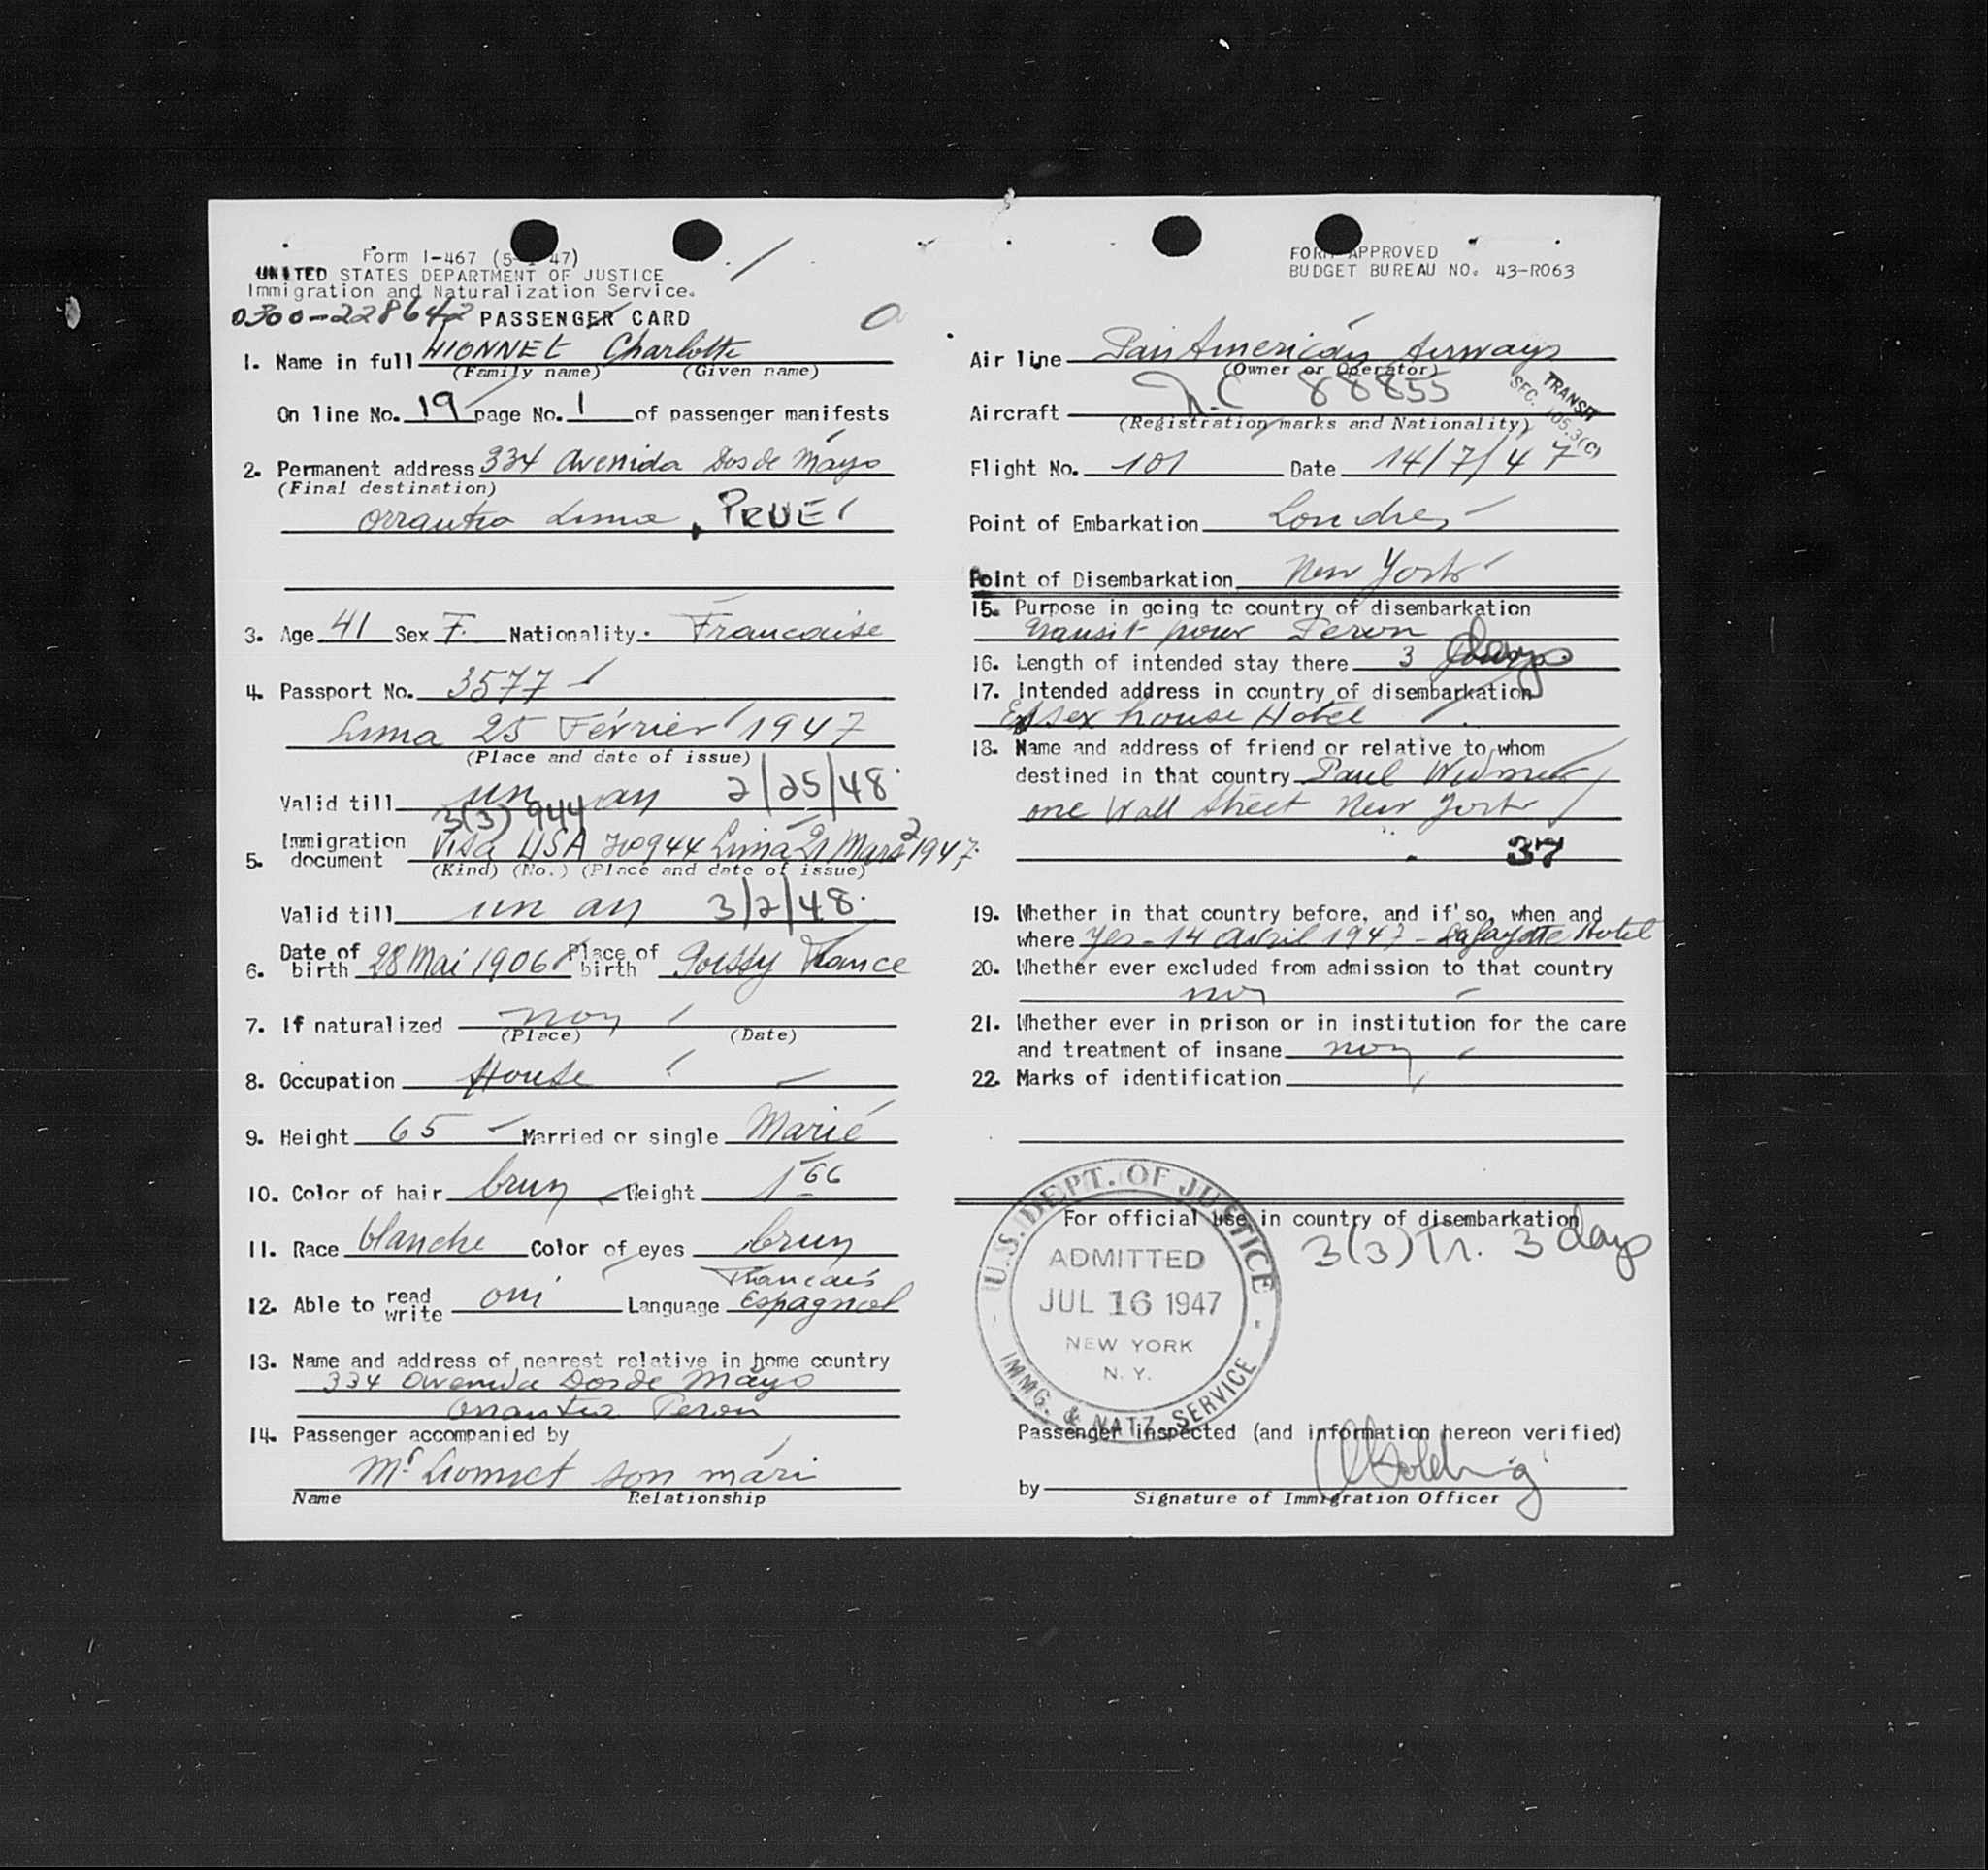 Form I-467 (5- -47)
UNITED STATES DEPARTMENT OF JUSTICE
Immigration and Naturalization Service.
0300-228642 PASSENGER CARD
1. Name in full Charlotte
(Family name) (Given name)
On line No. 19 page No. 1 of passenger manifests
2. Permanent address 334 Avenida Dos de Mayo
(Final destination)
Orrantia Lima, PRUE
3. Age 41 Sex F. Nationality. Francaise
4. Passport No. 3577
Lima 25 Février 1947
(Place and date of issue)
Valid till un an 2/25/48.
3(3) 944
5. Immigration document Visa USA 944 Lima Mars 2 1947
(Kind) (No.) (Place and date of issue)
Valid till un an 3/2/48.
6. Date of birth 28 Mai 1906 Place of birth Poissy France
7. If naturalized non
(Place) (Date)
8. Occupation House
9. Height 65 Married or single Marié
10. Color of hair brun Weight 1 66
11. Race blanche Color of eyes brun
Francais
12. Able to read write oui Language Espagnol
13. Name and address of nearest relative in home country
334 Avenida Dos de Mayo
Orrantia Perou
14. Passenger accompanied by
Mr Lionnet son mari
Name Relationship
FORM APPROVED
BUDGET BUREAU NO. 43-R063
Air line Pan American Airways
(Owner or Operator)
TRANSIT
SEC. 105.3(C)
Aircraft N.C 88855
(Registration marks and Nationality)
Flight No. 101 Date 14/7/47
Point of Embarkation Londres
Point of Disembarkation New York
15. Purpose in going to country of disembarkation
transit pour Perou
16. Length of intended stay there 3 days
17. Intended address in country of disembarkation
Essex house Hotel
18. Name and address of friend or relative to whom
destined in that country Paul
one Wall Street New York
37
19. Whether in that country before, and if so, when and
where yes - 14 avril 1947 - Lafayette Hotel
20. Whether ever excluded from admission to that country
non
21. Whether ever in prison or in institution for the care
and treatment of insane non
22. Marks of identification
For official use in country of disembarkation
3(3) Tr. 3 days
U.S. DEPT. OF JUSTICE
ADMITTED
JUL 16 1947
NEW YORK
N. Y.
IMMG. & NATZ. SERVICE
Passenger inspected (and information hereon verified)
by
Signature of Immigration Officer